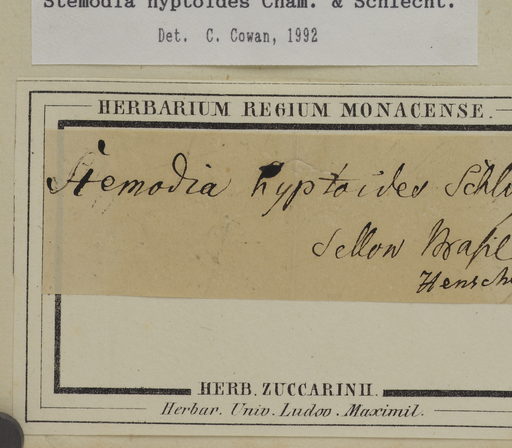 Stemodia hyptoides Cham. & Schlecht.
Det. C. Cowan, 1992
HERBARIUM REGIUM MONACENSE.
Stemodia hyptoides Schl
Sellow Brasil
Hensch
HERB. ZUCCARINII.
Herbar. Univ. Ludov. Maximil.